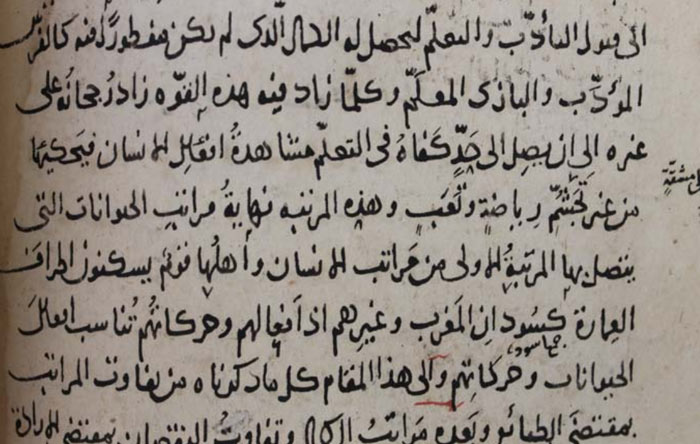 الى قبول التأدّب والتعلّم ليحصل له الكمال الذى لم يكن مفطورًا فيه كالفرس
المؤدّب والبازى المعلّم وكلّما زاد فيه هذه القوّه زاد رجحانه على
غيره الى ان يصل الى حدٍّ كفاهُ فى التعلّم مشاهدةُ افعال الانسان فيحكيها
من غير تجشّم رياضةٍ وتعبٍ وهذه المرتبه نهايةُ مراتب الحيوانات التى
مشقّةٍ
يتصل بها المرتبةُ الاولى من مراتب الانسان وأهلُها قومٌ يسكنون اطراف
العمارة كسودان المغرب وغيرهم اذ افعالهم وحركاتهُم تُناسب افعال
الحيوانات وحركاتهم والى هذا المقام كل ما ذكرناه من تفاوت المراتب
بمقتضى الطبائع وبعده مراتب الكمال وتفاوتُ النقصان بمقتضى الارادة